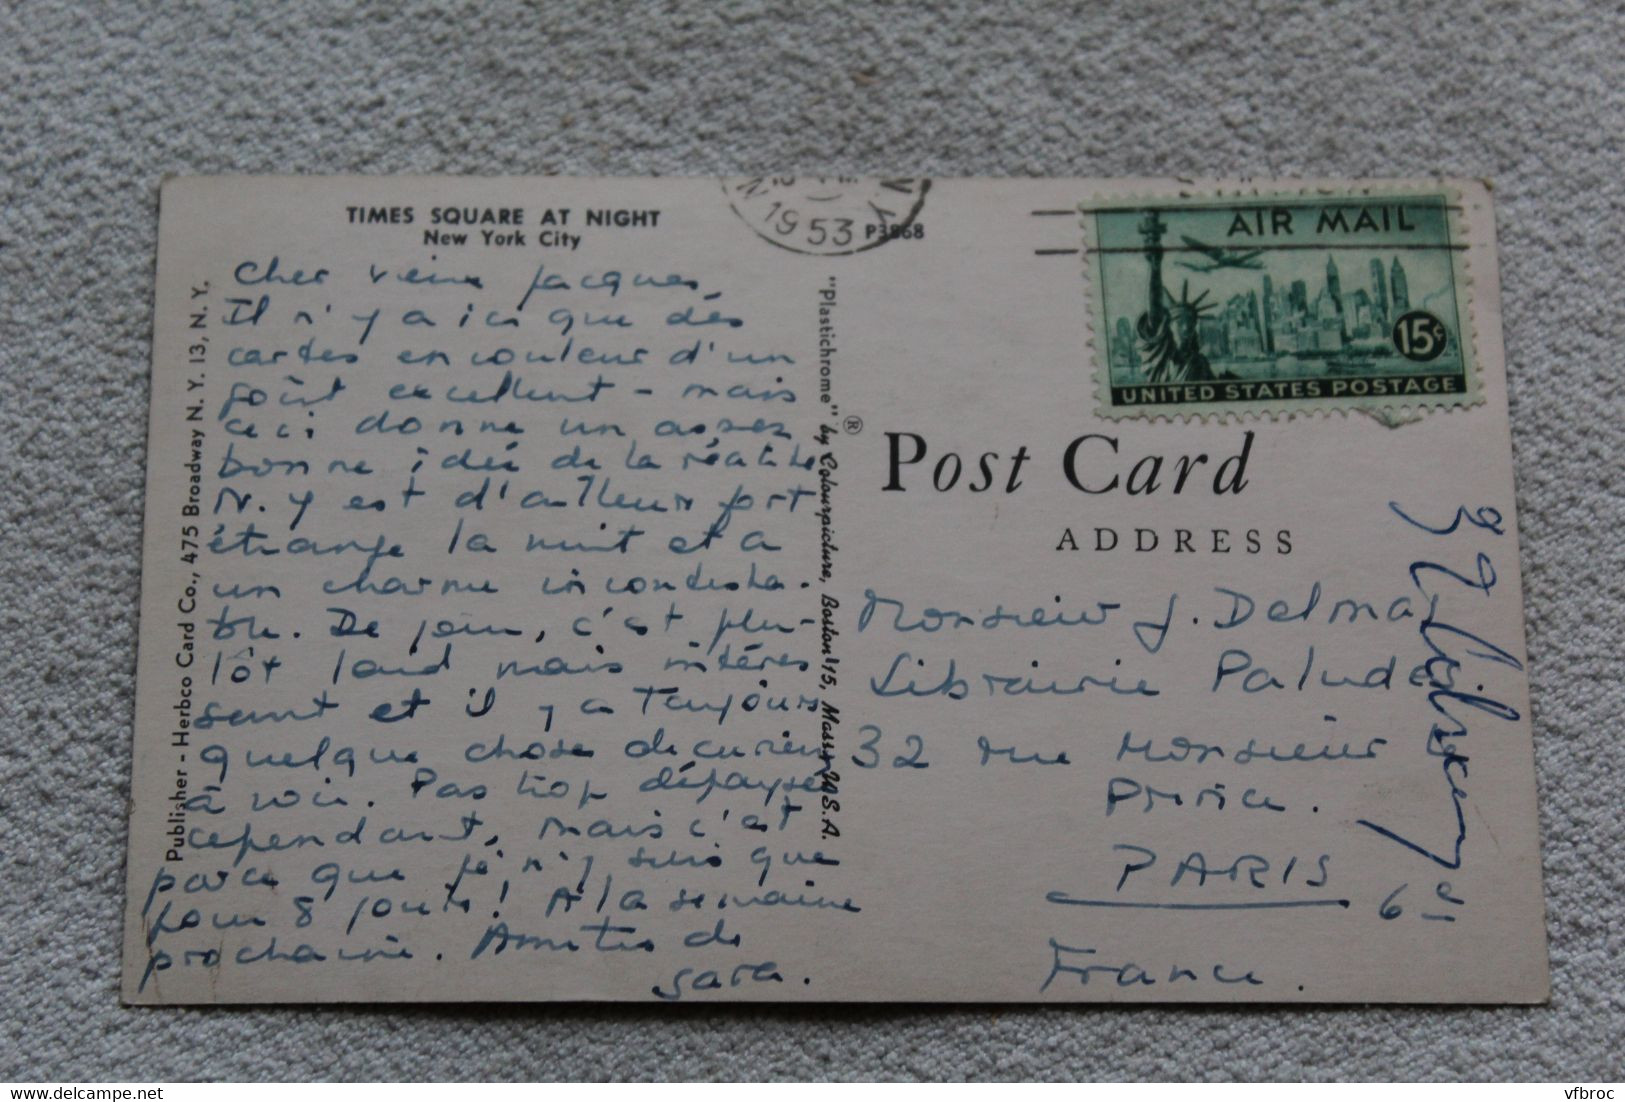 TIMES SQUARE AT NIGHT
New York City
Cher vieux Jacques,
Il n'y a ici que des
cartes en couleur d'un
goût excellent - mais
ceci donne un assez
bonne idée de la réalité
N. Y est d'ailleurs fort
étrange la nuit et a
un charme incontesta-
ble. De jour, c'est plu-
tôt laid mais intéres
sant et il y a toujours
quelque chose de curieux
à voir. Pas trop dépaysée
cependant, mais c'est
parce que je n'y suis que
pour 8 jours! A la semaine
prochaine. Amitiés de
Sara.
Publisher - Herbco Card Co., 475 Broadway N. Y. 13, N. Y.
"Plastichrome" ® by Colourpicture, Boston 15, Mass., U.S.A.
1953
P3868
AIR MAIL
15¢
UNITED STATES POSTAGE
Post Card
ADDRESS
Monsieur J. Delmas
Librairie Paludes
32 rue Monsieur le
Prince.
PARIS
6e
France.
vfbroc